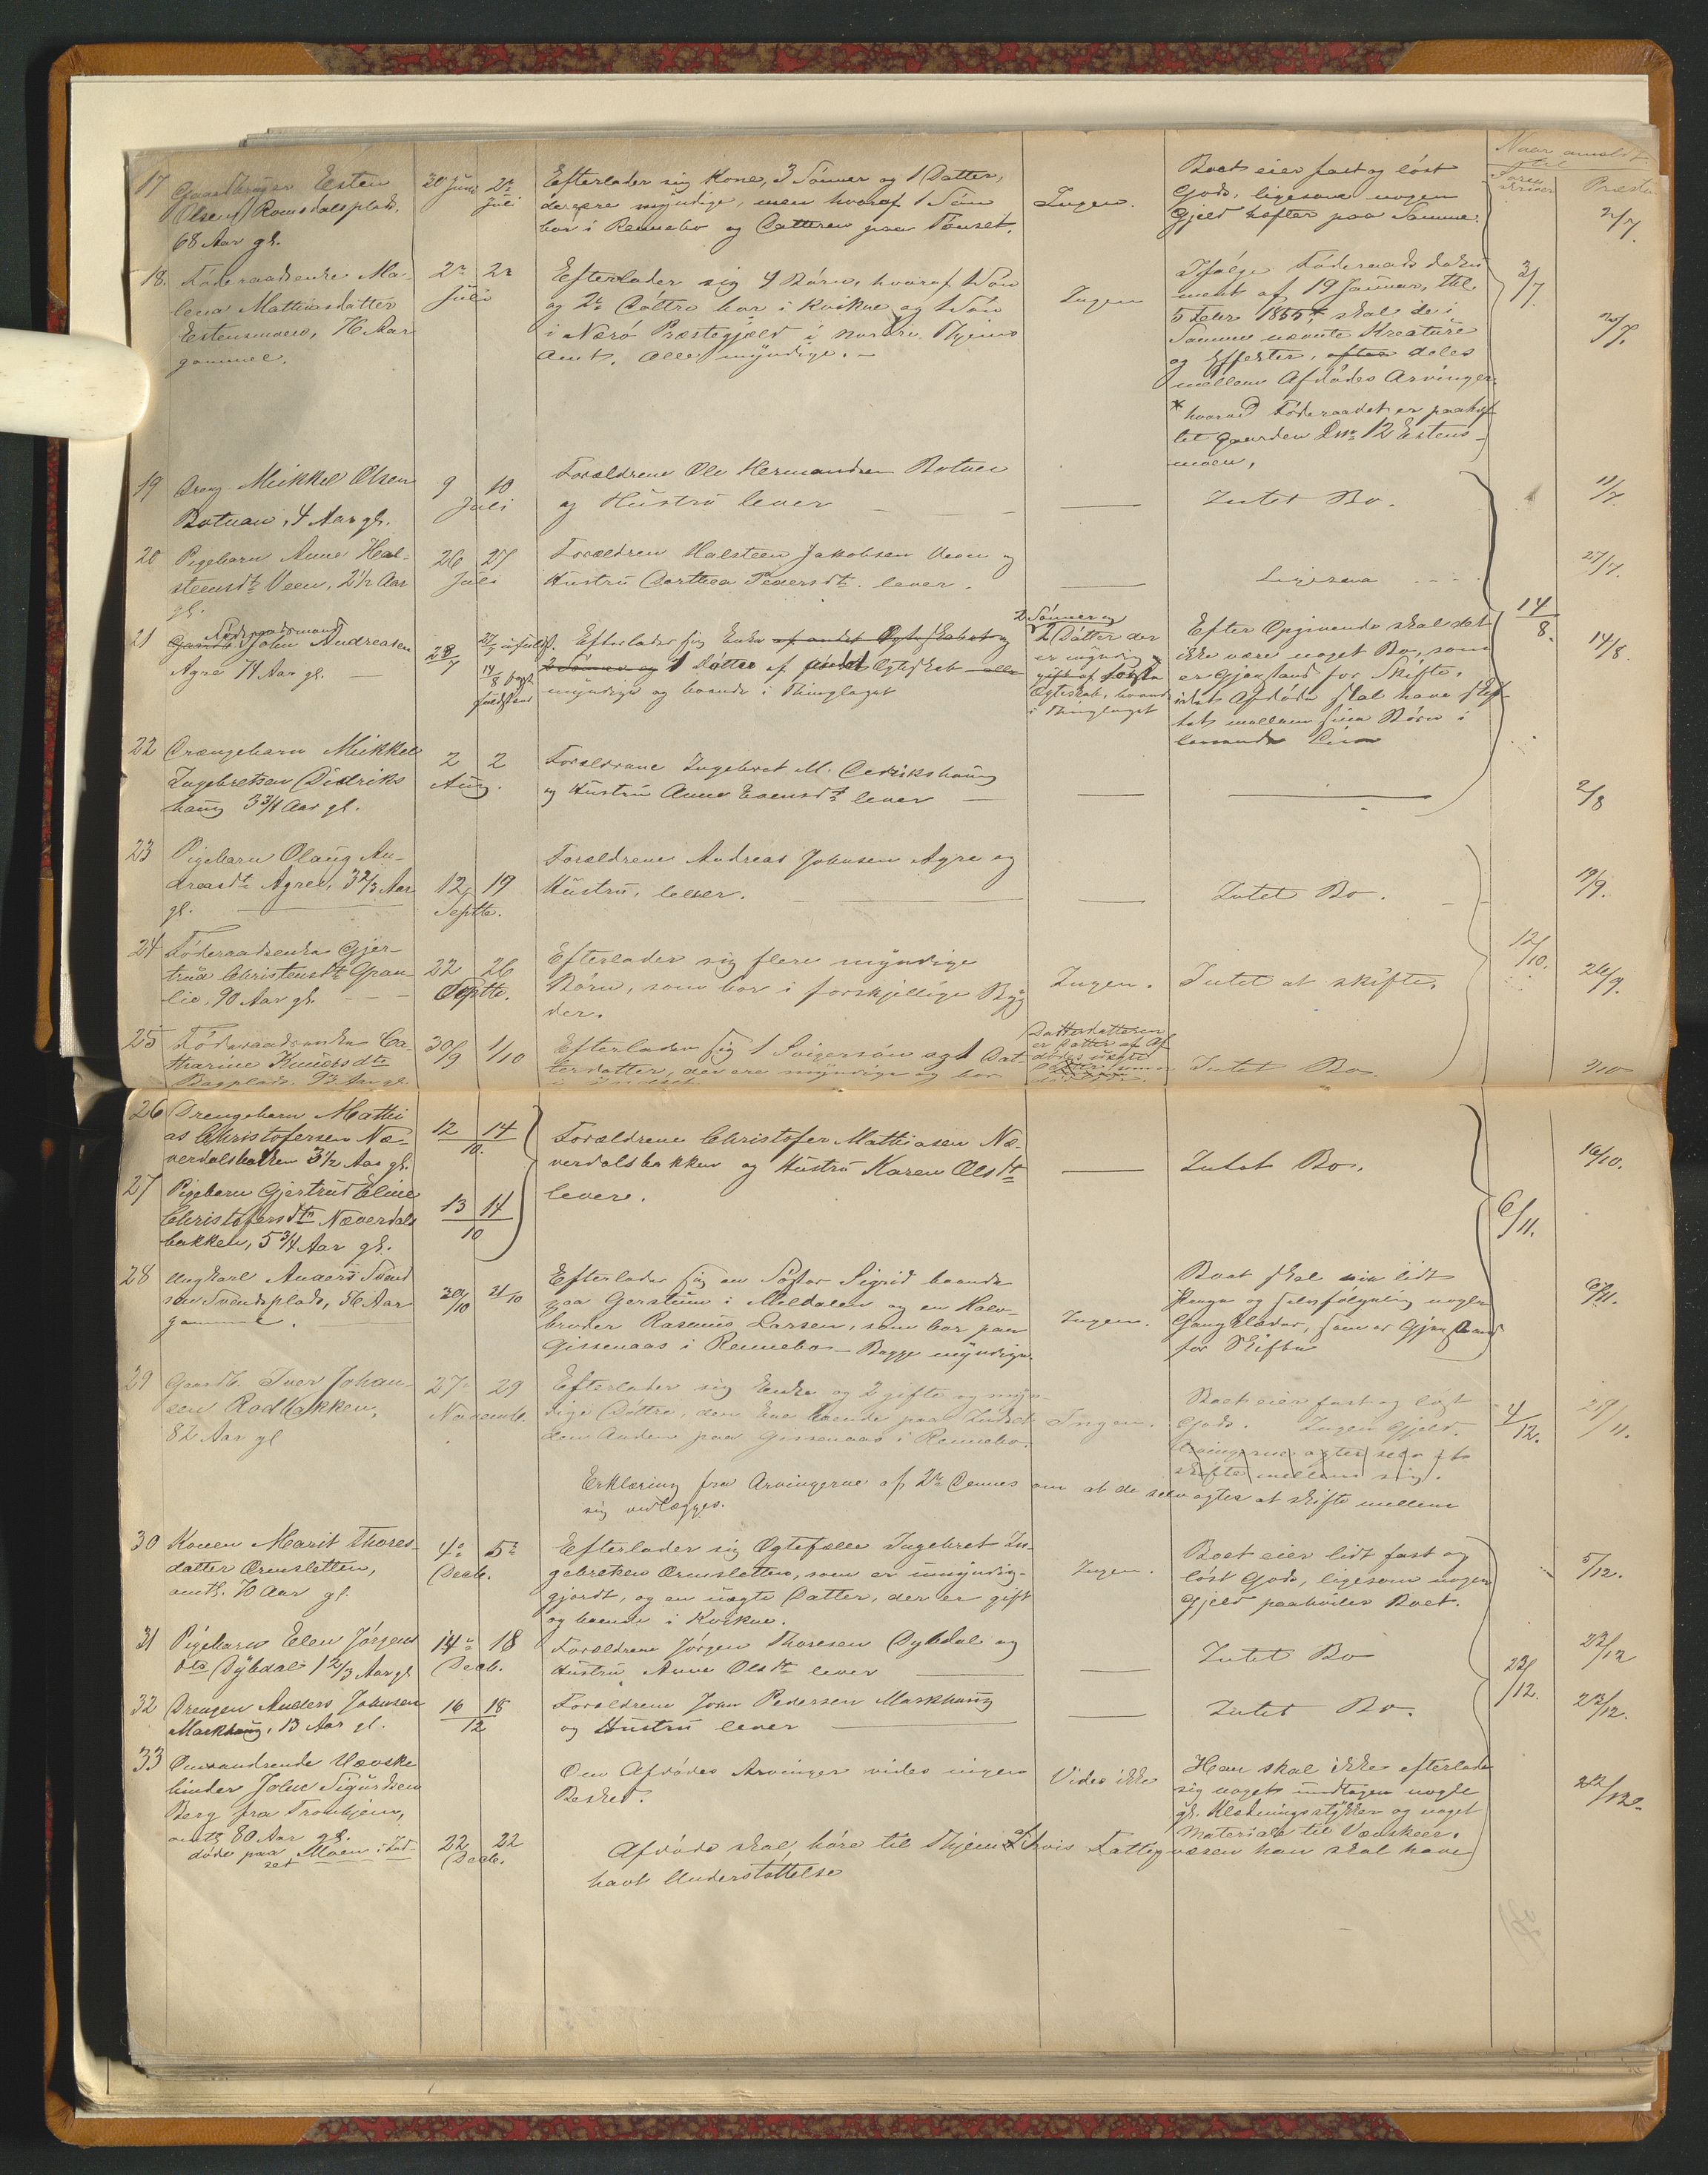 Naar anmeldt
til
Præsten
17 Gaardbruger Esten
Olsen Romsdalsplads,
68 Aar gl.
30 Juni 2n Juli
Efterlader sig Kone, 3 Sönner og 1 Datter,
der ere myndige, men hvoraf 1 Sön
bor i Rennebo og Datteren paa Tönset.
Ingen.
Boet eier fast og löst
Gods, ligesom nogen
Gjeld hefter paa Samme.
2/7.
18. Föderaadsenke Ma-
lena Mathiasdatter
Estensmoen, 76 Aar
gammel.
2n 2n
Juli
Efterlader sig 4 Börn, hvoraf 1 Sön
og 2 Döttre bor i Kvikne og 1 Sön
i Nærö Præstegjeld i nordre Thjems
Amt. Alle myndige. –
Ingen
Ifölge Föderaads doku
ment af 19 Januar, thl.
5 Febr 1855* skal de i
Samme nævnte Kreature
og Effekter, deles
mellem Afdödes Arvinger.
* hvorved Föderaadet er paahef
tet Gaarden Lnr. 12 Estens-
moen.
3/7.
19 Dreng Mikkel Olsen
Botnen, 4 Aar gl.
9 10
Juli
Forældrene Ole Hermandsen Botnen
og Hüstrü lever
Intet Bo.
11/7.
20 Pigebarn Anne Hal-
steensdtr Veen, 2 1/2 Aar
gl.
26 27
Juli
Forældren Halsteen Jakobsen Veen og
Hüstrü Dorthea Pedersdtr. lever.
Ligesaa
27/7.
21 Föderaadsmand
John Andreasen
Agre 74 Aar gl.
28/7
14/8
Efterlader sig Enke af andet Ægteskab og
2 Sönner og 1 Dötter af andet Ægteskab alle
myndige og boende i Thinglaget
2 Sönner og
2 Datter der
er myndig
gift af förste
Ægteskab, boende
i Thinglaget
Efter Opgivende skal det
ikke være noget Bo, som
er Gjenstand for Skifte,
idet Afdöde skal have skif-
tet mellem sine Börn i
levende Live
14/8.
14/8.
22 Drengebarn Mikkel
Ingebretsen Didriks
haug 3 3/4 Aar gl.
2 2
Aug.
Forældrene Ingebret M. Dedrikshaug
og Hüstrü Anne Evensdtr lever
2/8
23 Pigebarn Olaug An-
dreasdtr Agree, 3 2/3 Aar
gl.
12 19
Septbr.
Forældrene Andreas Johnsen Agre og
Hüstrü, lever.
Intet Bo.
19/9.
24 Föderaadsenke Gjer-
trud Christensdtr Gran-
lie, 90 Aar gl.
22 26
Septbr.
Efterlader sig flere myndige
Börn, som bor i forskjellige Byg
der.
Ingen.
Intet at skifte.
12/10.
26/9.
25 Föderaadsenke Ca-
tharine Knudsdtr
Bagplads, 93 Aar gl.
30/9 1/10
Efterlader sig 1 Svigersön og 1 Dat
terdatter, der ere myndige og bor
Datterdatteren
er Datter af Af
dödes uægte
Intet Bo.
2/10
26 Drengebarn Mathi
as Christofersen Næ-
verdalsbakken 3 1/2 Aar gl.
12 14
10.
Forældrene Christofer Mathiasen Næ-
verdalsbakken og Hüstrü Karen Olsdtr
lever.
Intet Bo.
16/10.
27 Pigebarn Gjertrud Eline
Christofersdtr Næverdals
bakken, 5 3/4 Aar gl.
13 14
10
6/11.
28 Ungkarl Anders Svend
sen Svendsplads, 36 Aar
gammel.
20/10 21/10
Efterlader sig en Söster Sigrid boende
paa Gerstuen i Meldalen og en Halv-
broder Rasmus Larsen, som bor paa
Gissenaas i Rennebo – Begge myndige.
Ingen.
Boet skal eie lidt
Penge og selvfölgelig nogle
Gangklæder, som er Gjenstand
for Skifte
6/11.
29 Gaardbr. Iver Johan-
sen Rodbakken,
82 Aar gl
27 29
Novembr.
Efterlader sig Enke og 2 gifte og myn-
dige Döttre, den Ene boende paa Indset
den Anden paa Gissenaas i Rennebo.
Ingen.
Boet eier fast og löst
Gods. Ingen Gjeld.
Arvingerne agter selv at
skifte mellem sig.
4/12.
29/11.
Erklæring fra Arvingerne af 2n Dennes om at de selv agter at skifte mellem
sig vedlægges.
30 Konen Marit Thores-
datter Ormsletten,
omtr. 70 Aar gl.
4 5
Decbr.
Efterlader sig Ægtefælle Ingebret In-
gebretsen Ormsletten, som er umyndig-
gjordt, og en uægte Datter, der er gift
og boende i Kvikne.
Ingen.
Boet eier lidt fast og
löst Gods, ligesom nogen
Gjeld paahviler Boet.
5/12.
31 Pigebarn Elen Jörgens
dtr Dybdal 1 2/3 Aar gl
14 18
Decbr.
Forældrene Jörgen Thoresen Dybdal og
Hüstrü Anne Olsdtr lever
Intet Bo
23/12.
22/12
32 Drengen Anders Johnsen
Markhaug, 13 Aar gl.
16 18
12
Forældrene John Pedersen Markhaug
og Hüstrü lever
Intet Bo.
22/12.
33 Omvandrende Vævske
binder John Sigurdsen
Berg fra Tronhjem,
omtr 80 Aar gl.
döde paa Moen i Ind-
set
22 22
Decbr.
Om Afdödes Arvinger vides ingen
Besked.
Vides ikke
Han skal ikke efterlade
sig noget undtagen nogle
gl. Klædningsstykker og noget
Materiale til Vævskeer.
22/12.
Afdöde skal höre til Thjem af hvis Fattigvæsen han skal have
havt Understöttelse